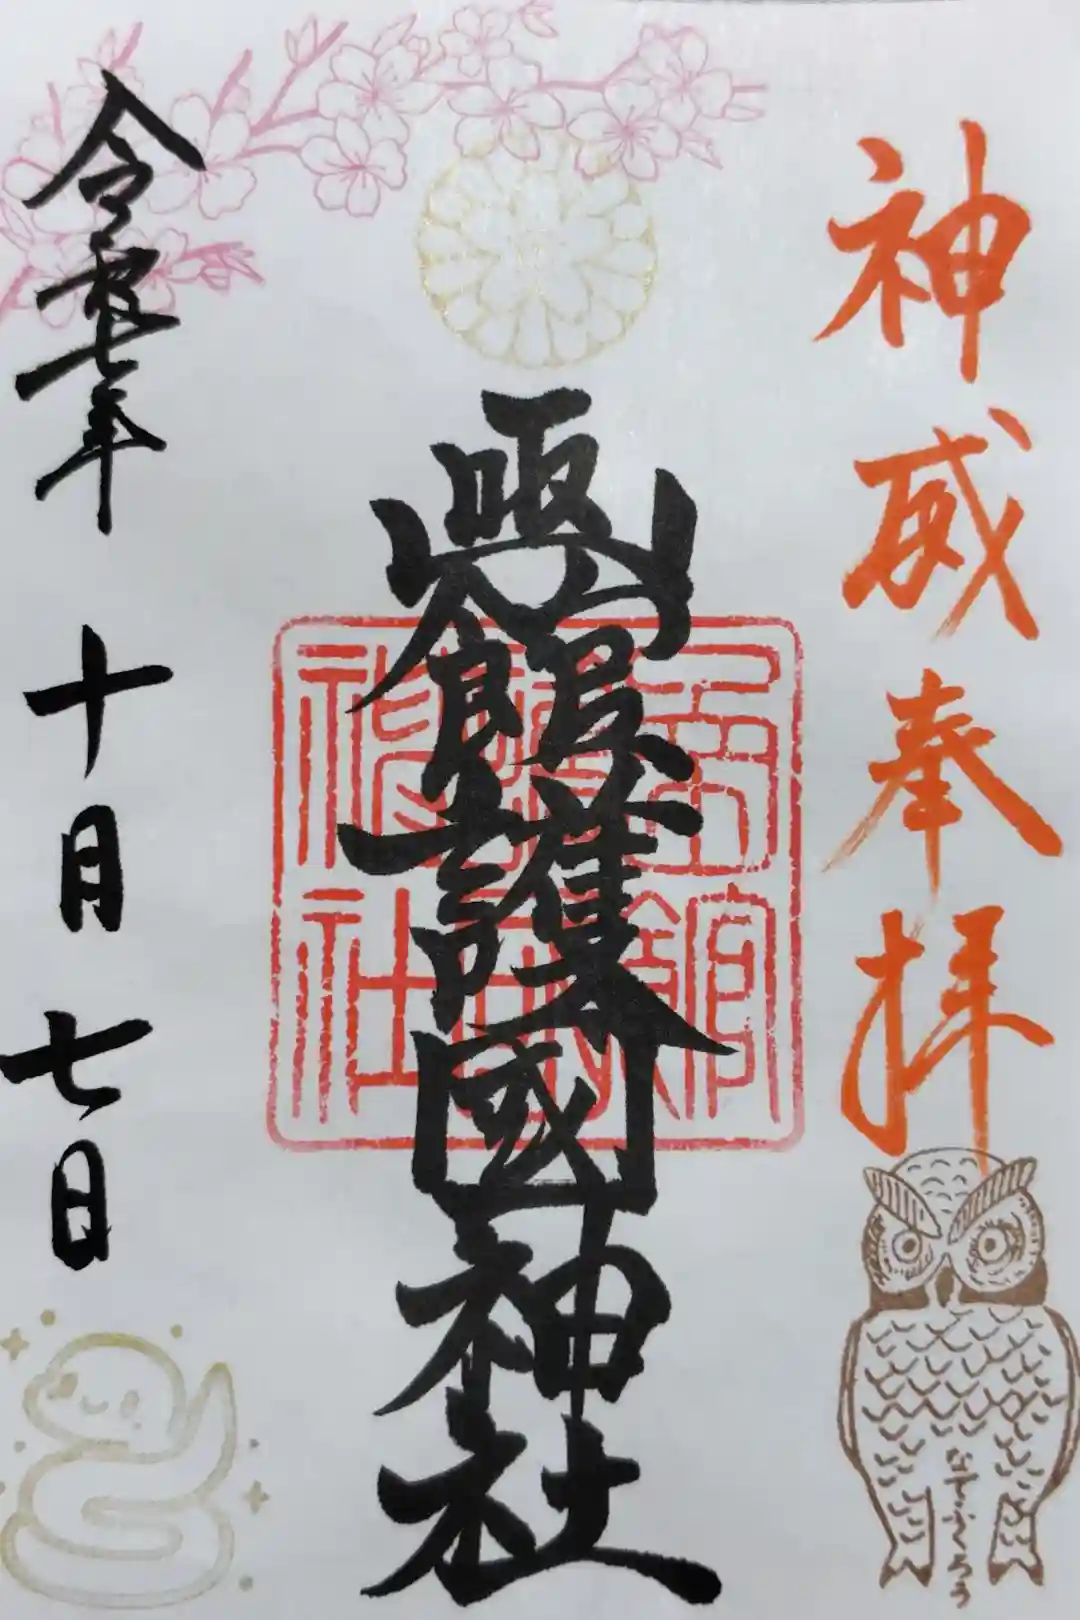 神威奉拝
函館護國神社
函館
護國
神社
令和七年 十月七日
なでふくろう